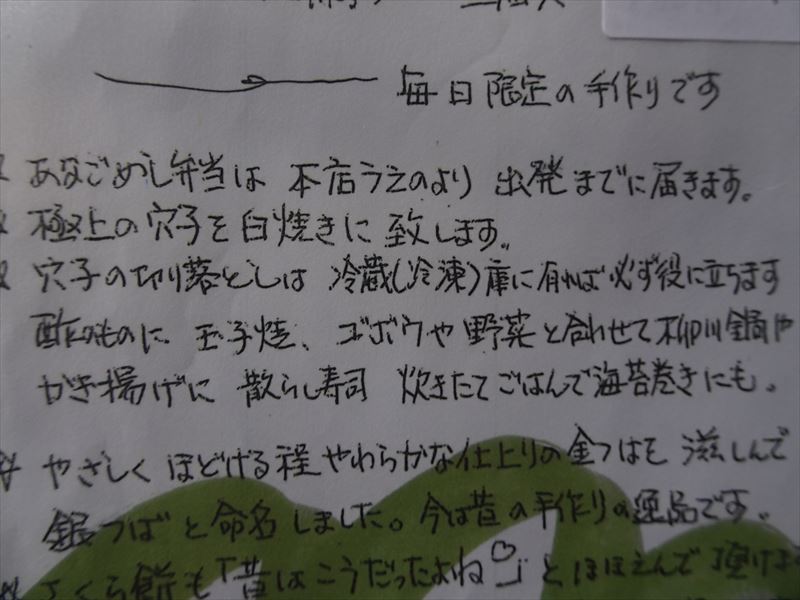 毎日限定の手作りです
あなごめし弁当は 本店うえのより 出発までに届きます。
極上の穴子を白焼きに 致します。
穴子の切り落としは 冷蔵(冷凍)庫に有れば必ず役に立ちます
酢のものに 玉子焼、ゴボウや野菜と合わせて柳川鍋や
かき揚げに 散らし寿司 炊きたてごはんで海苔巻きにも。
やさしく ほどける程やわらかな仕上りの金つばを 滋しんで
銀つば と命名しました。今は昔の手作りの逸品です。
さくら餅も「昔はこうだったよね♡」とほほえんで頂けま